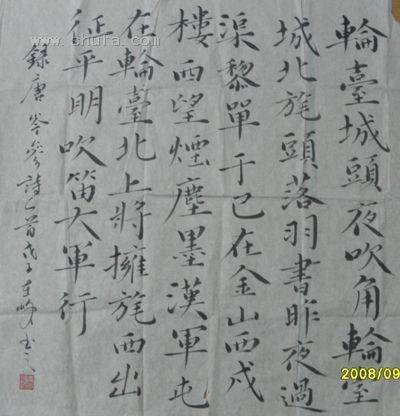 輪臺城頭夜吹角輪臺
城北旄頭落羽書昨夜過
渠黎單于已在金山西戍
樓西望煙塵墨漢軍屯
在輪臺北上將擁旄西出
征平明吹笛大軍行
錄唐岑參詩一首戊子
2008/09